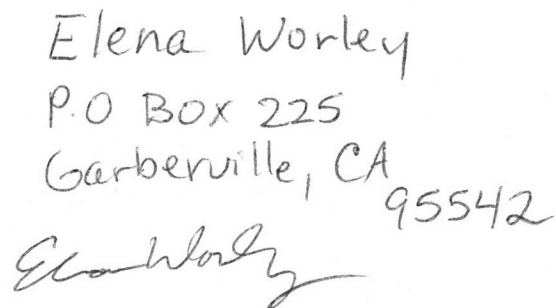 Elena Worley
P.O Box 225
Garberville, CA
95542
Elena Worley